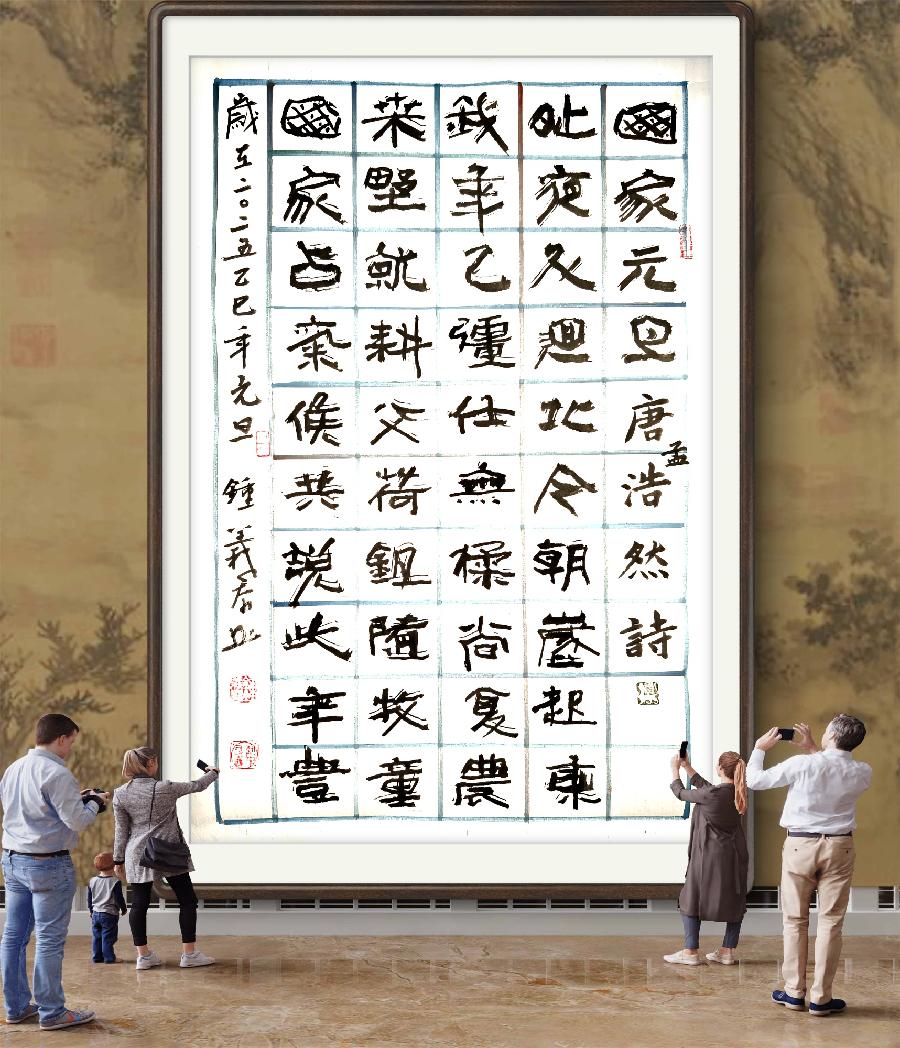 田家元旦唐孟浩然詩
昨夜斗迴北今朝歲起東
我年已彊仕無祿尚憂農
桑野就耕父荷鉏隨牧童
田家占氣候共說此年豐
歲在二〇二五乙巳年元旦 鍾義